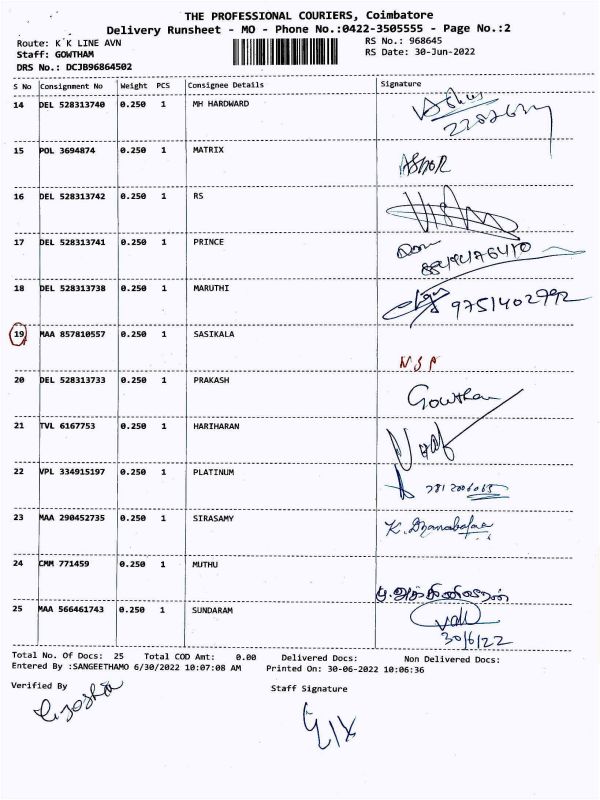 THE PROFESSIONAL COURIERS, Coimbatore
Delivery Runsheet - MO - Phone No.:0422-3505555 - Page No.:2
Route: K K LINE AVN
RS No.: 968645
Staff: GOWTHAM
RS Date: 30-Jun-2022
DRS No.: DCJB96864502
S No Consignment No Weight PCS Consignee Details Signature
14 DEL 528313740 0.250 1 MH HARDWARD
15 POL 3694874 0.250 1 MATRIX
ASHOR
16 DEL 528313742 0.250 1 RS
17 DEL 528313741 0.250 1 PRINCE
18 DEL 528313738 0.250 1 MARUTHI
9751402792
19 MAA 857810557 0.250 1 SASIKALA
NSP
20 DEL 528313733 0.250 1 PRAKASH
Gowtham
21 TVL 6167753 0.250 1 HARIHARAN
22 VPL 334915197 0.250 1 PLATINUM
23 MAA 290452735 0.250 1 SIRASAMY
K. Dhanabalan
24 CMM 771459 0.250 1 MUTHU
25 MAA 566461743 0.250 1 SUNDARAM
30/6/22
Total No. Of Docs: 25 Total COD Amt: 0.00 Delivered Docs: Non Delivered Docs:
Entered By :SANGEETHAMO 6/30/2022 10:07:08 AM Printed On: 30-06-2022 10:06:36
Verified By
Staff Signature